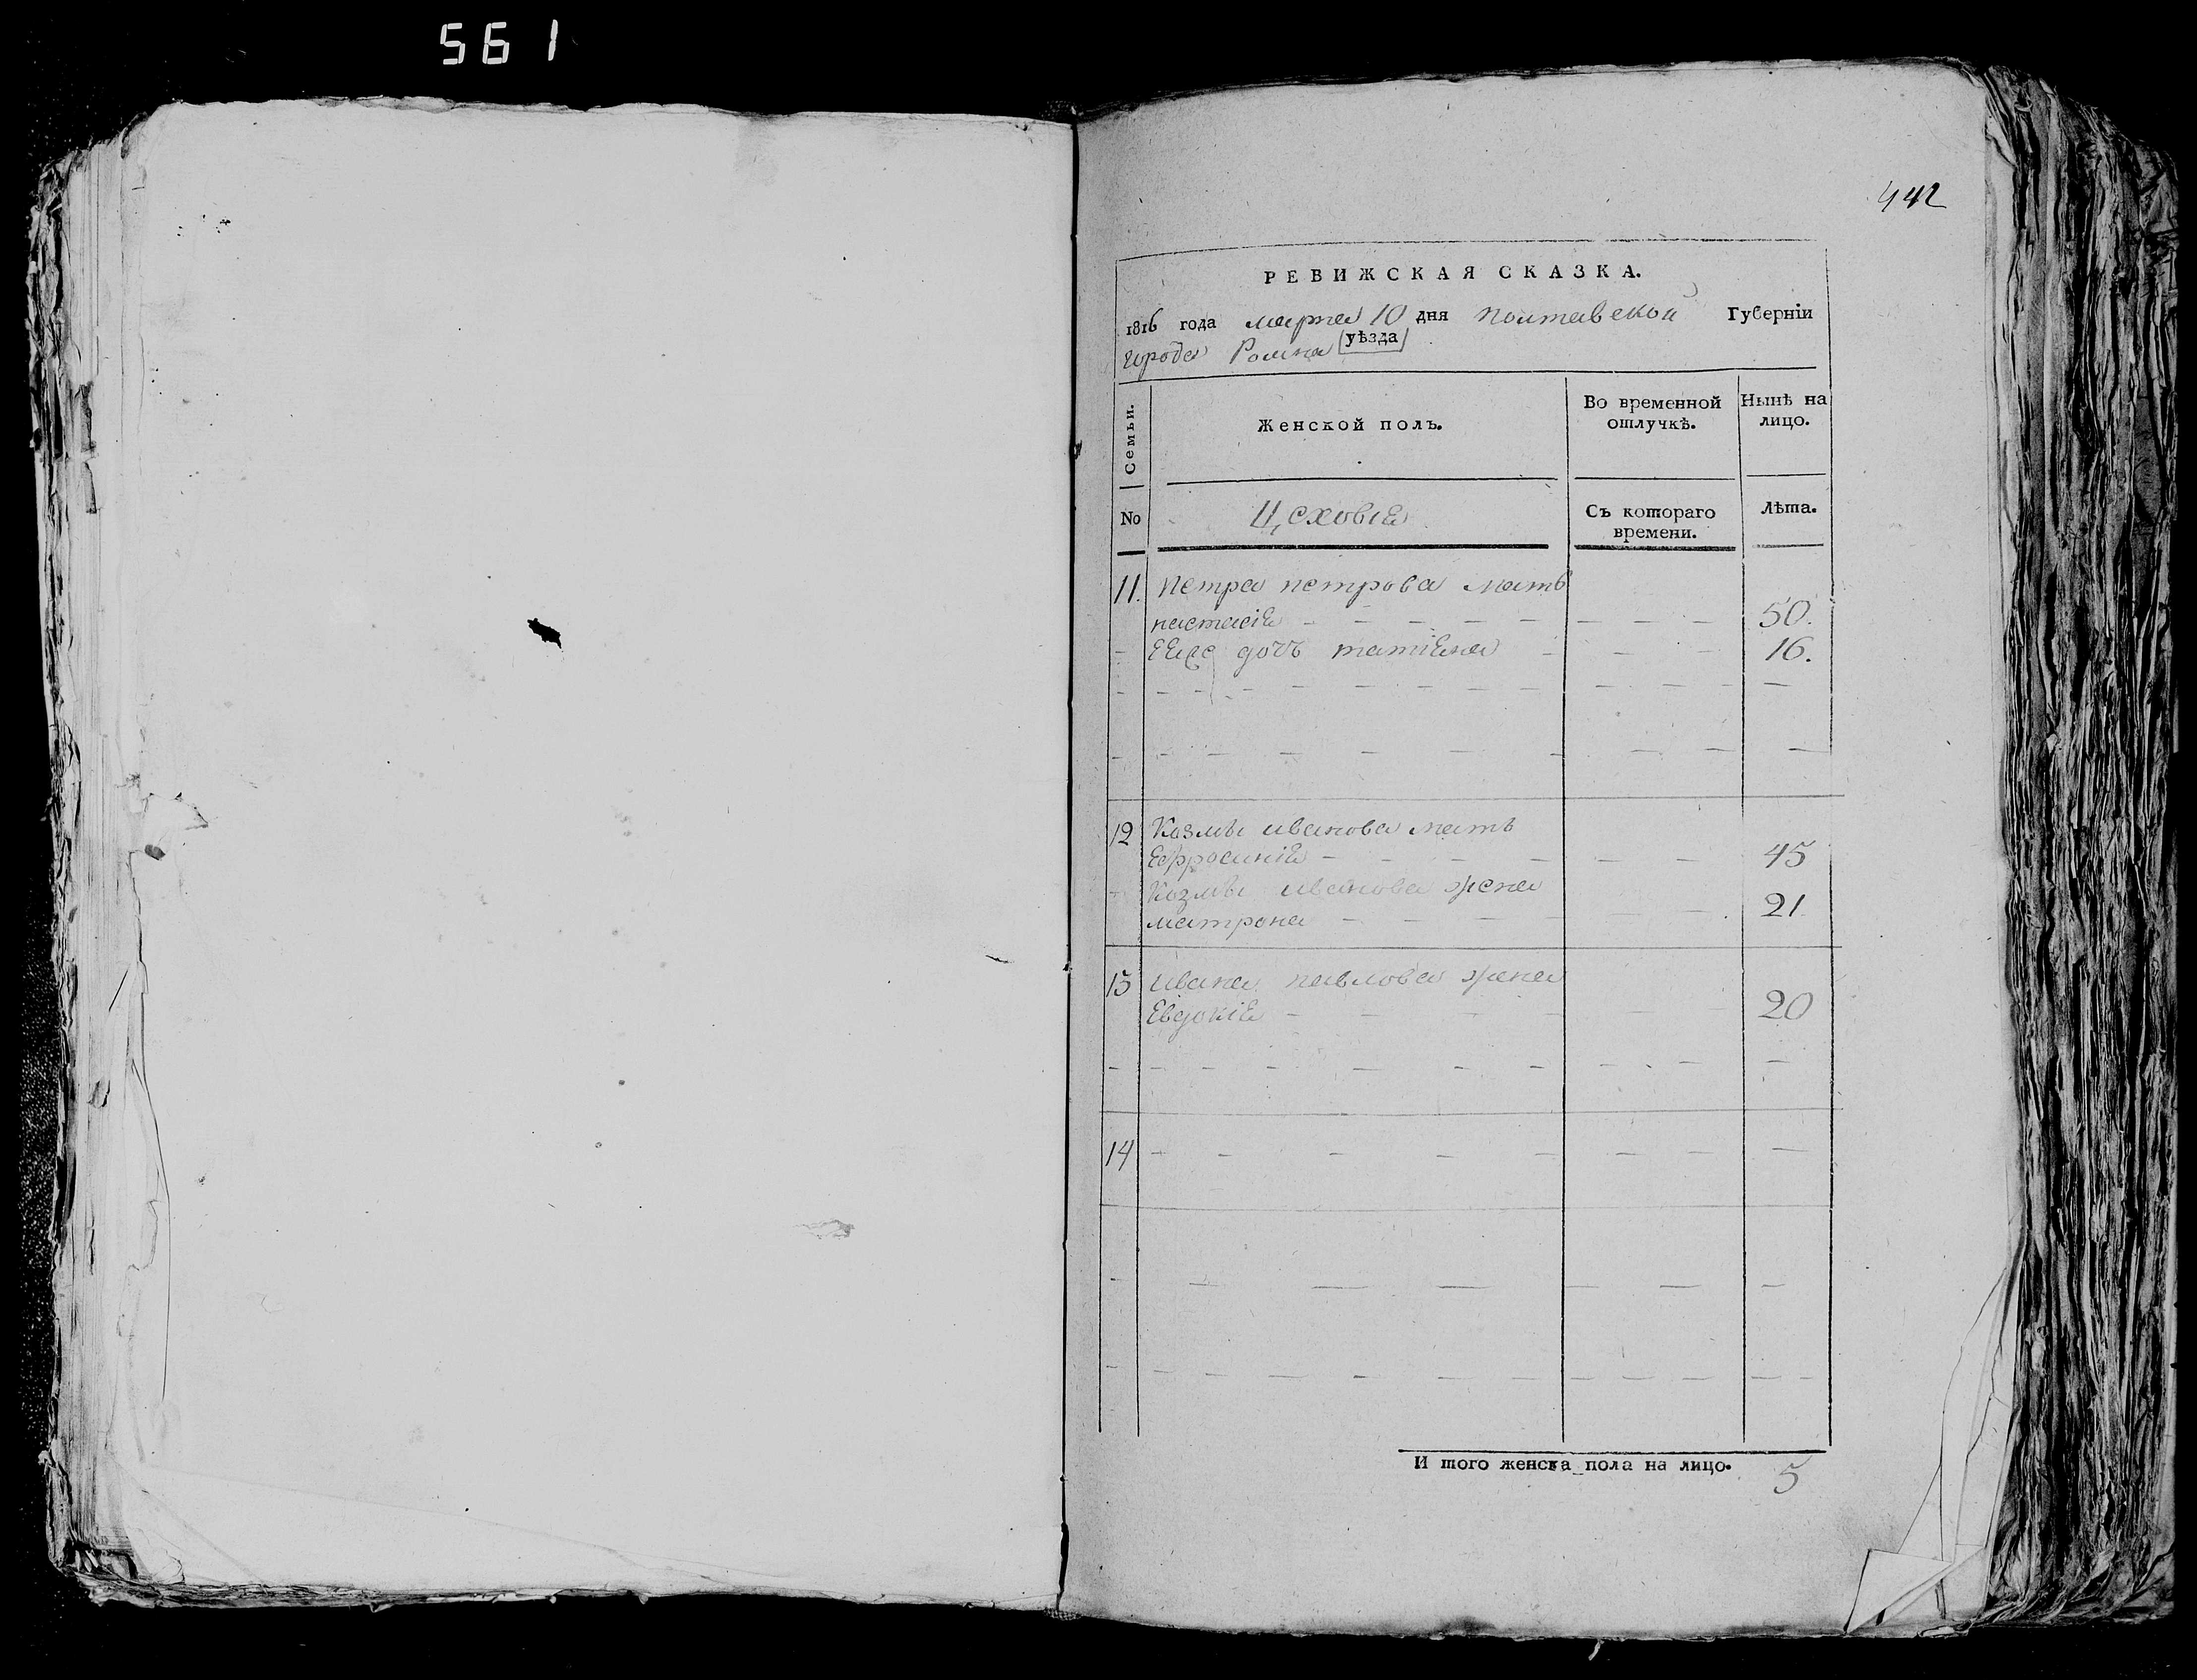 561
442
РЕВИЖСКАЯ СКАЗКА.
1816 года марта 10 дня Полтавской Губерніи
города Ромна уѣзда
Семьи.
Женской полъ.
Во временной отлучкѣ.
Нынѣ на лицо.
No
Цеховіе
Съ котораго времени.
Лѣта.
11. Петра петрова мать
настасія - - - - - - - - 50.
- дочъ татіяна - - - 16.
12 Козмы иванова мать
Ефросинія - - - - - - 45
Козмы иванова жена
матрона - - - - - - 21
13 Ивана павлова жена
Евдокія - - - - - 20
14 - - - - - - - -
И того женска пола на лицо. 5